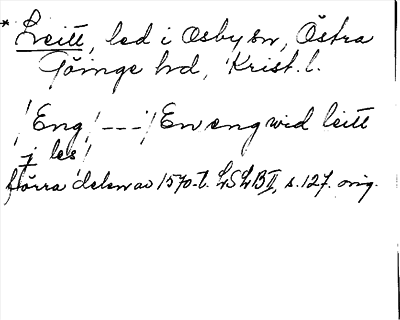 * Leitt, led i Osby sn, Östra
Göinge hd, Krist. l.
/Eng/ ---/ En eng wid leitt
j les/
förra delen av 1570-t. LSLB II, s. 127. orig.